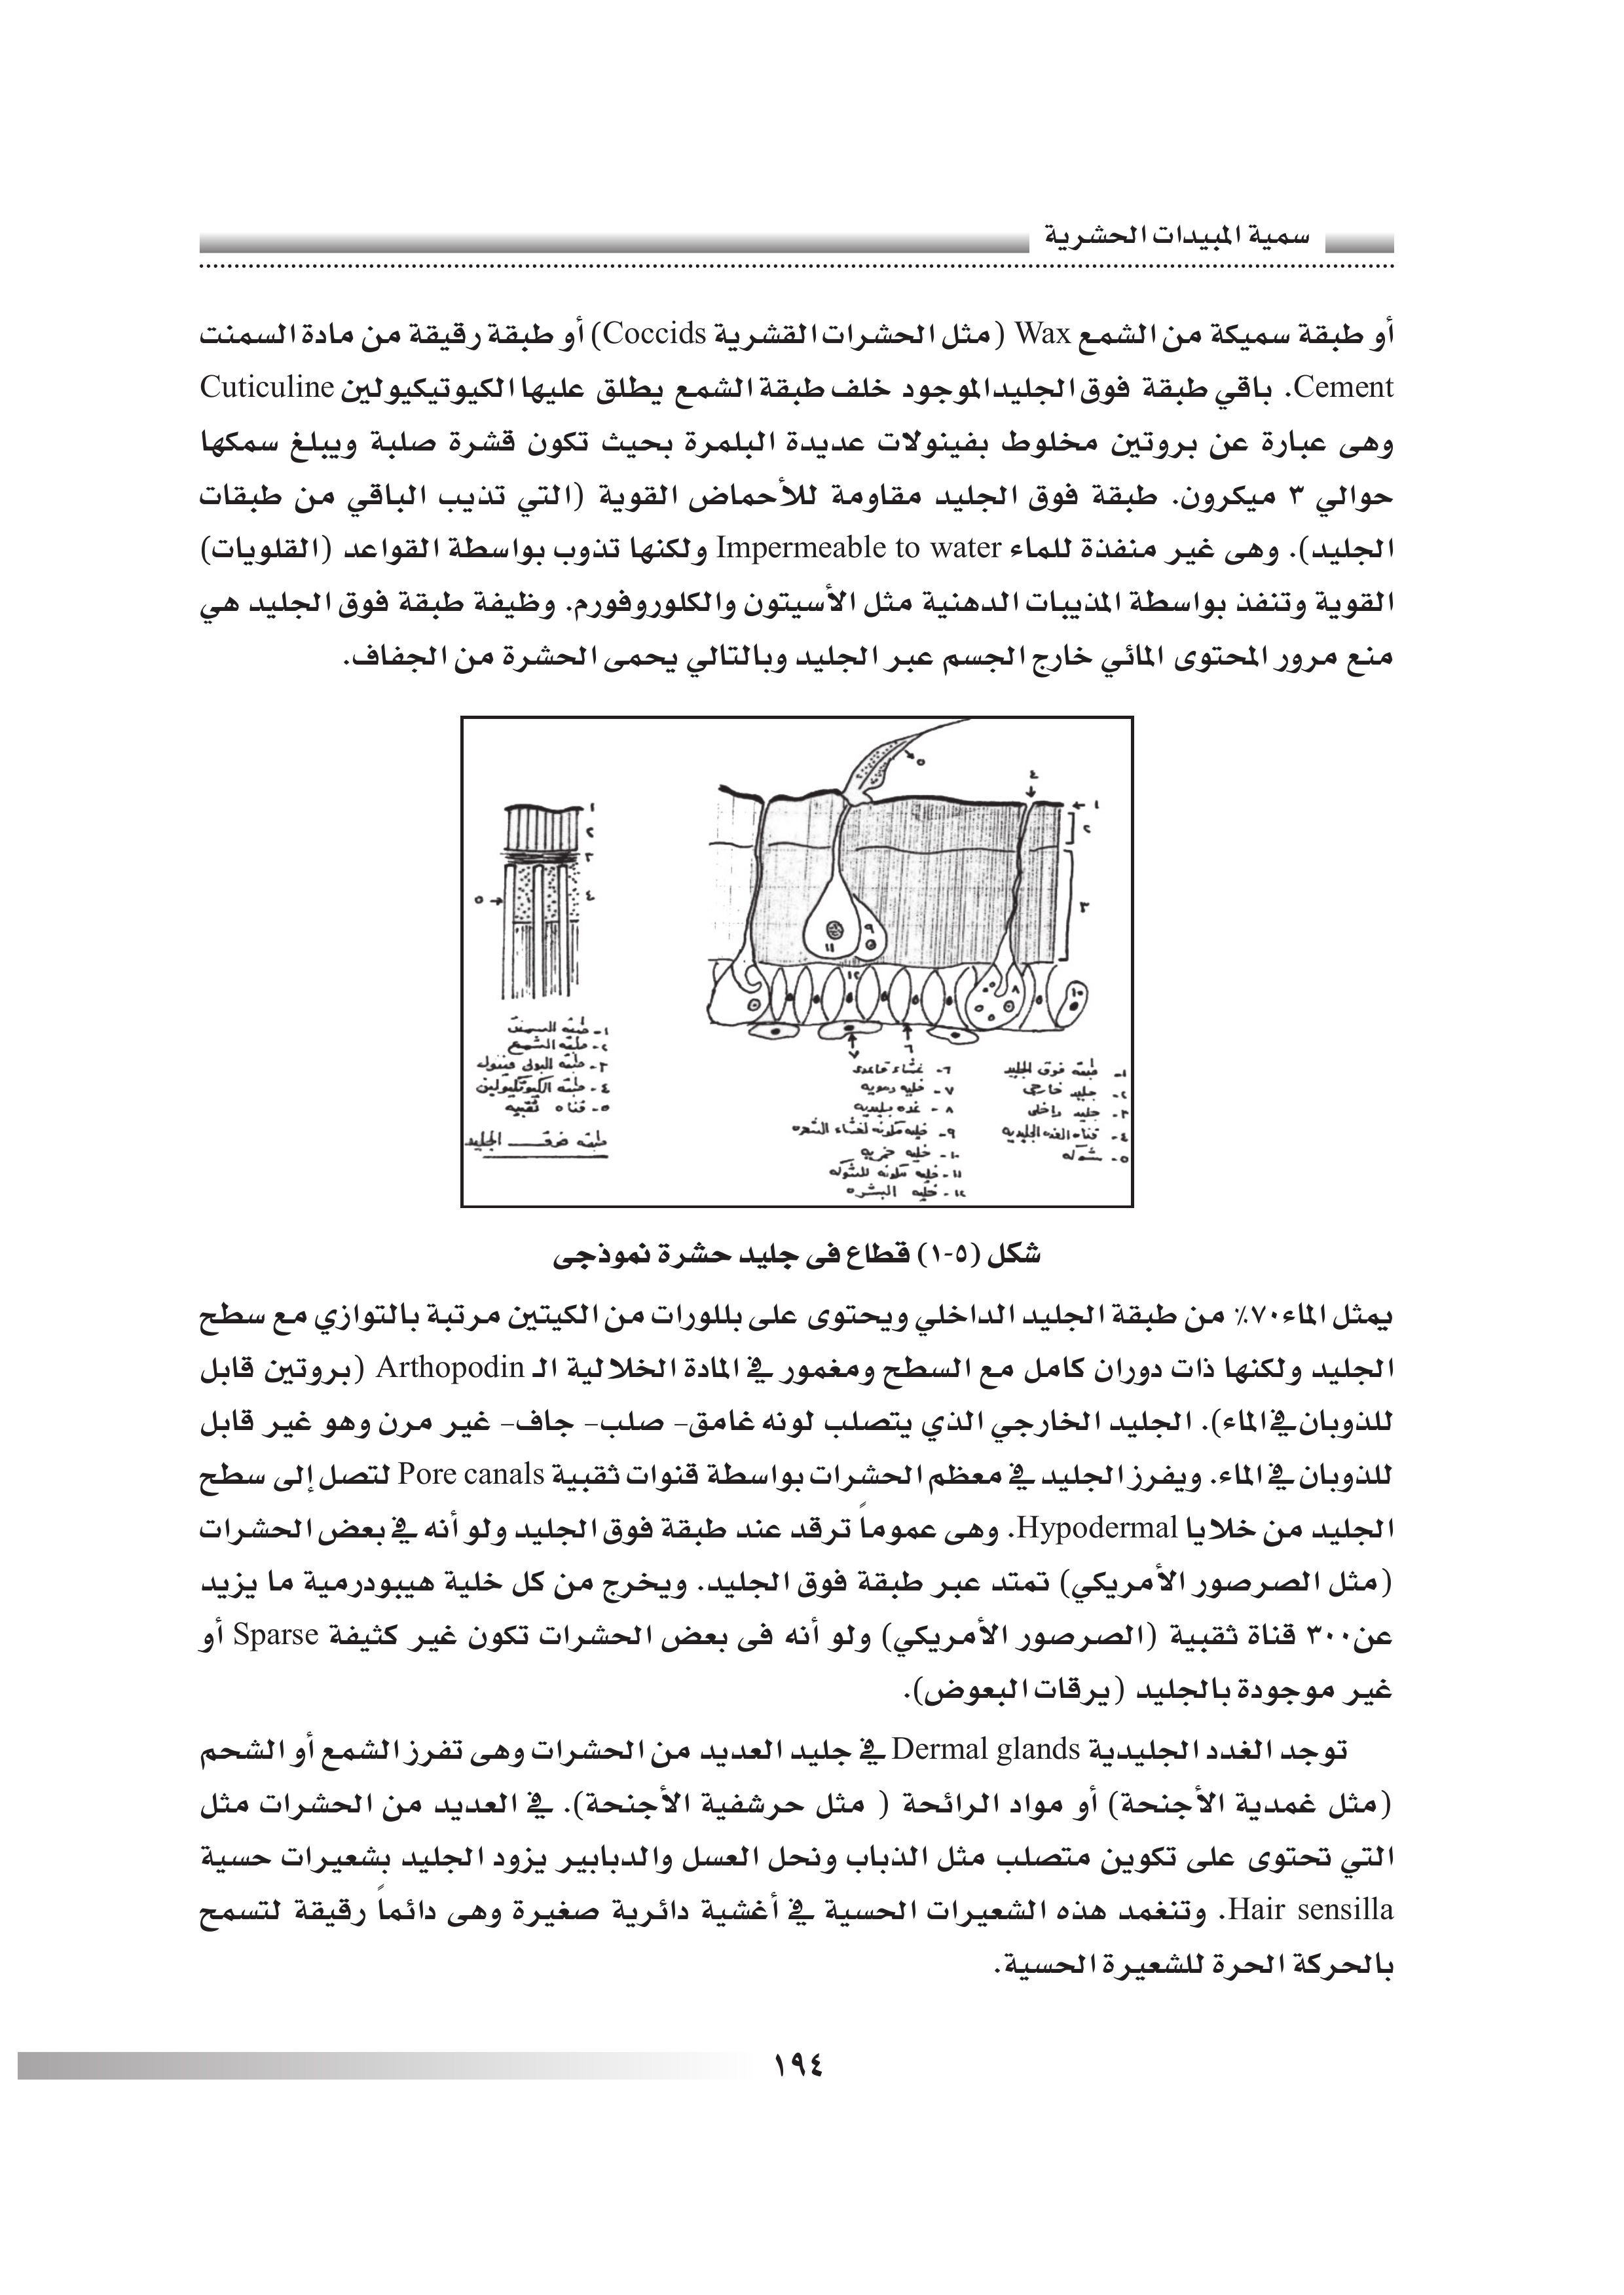 سمية المبيدات الحشرية
أو طبقة سميكة من الشمع Wax (مثل الحشرات القشرية Coccids) أو طبقة رقيقة من مادة السمنت
Cement. باقي طبقة فوق الجليد الموجود خلف طبقة الشمع يطلق عليها الكيوتيكيولين Cuticuline
وهى عبارة عن بروتين مخلوط بفينولات عديدة البلمرة بحيث تكون قشرة صلبة ويبلغ سمكها
حوالي ٣ ميكرون. طبقة فوق الجليد مقاومة للأحماض القوية (التي تذيب الباقي من طبقات
الجليد). وهى غير منفذة للماء Impermeable to water ولكنها تذوب بواسطة القواعد (القلويات)
القوية وتنفذ بواسطة المذيبات الدهنية مثل الأسيتون والكلوروفورم. وظيفة طبقة فوق الجليد هي
منع مرور المحتوى المائي خارج الجسم عبر الجليد وبالتالي يحمى الحشرة من الجفاف.
١- طبقه فوق الجليد
٢- جليد خارجى
٣- جليد داخلى
٤- قناه الغده الجليديه
٥- شوكه
٦- غشاء قاعدى
٧- خليه دمويه
٨- غده جليديه
٩- خليه مكونه لغشاء الشعره
١٠- خليه خمريه
١١- خليه مكونه للشوكه
١٢- خليه البشره
١- طبقه السمنت
٢- طبقه الشمع
٣- طبقه البولى فينول
٤- طبقه الكيوتيكيولين
٥- قناه ثقبيه
طبقه فوق الجليد
شكل (٥-١) قطاع فى جليد حشرة نموذجى
يمثل الماء ٧٠٪ من طبقة الجليد الداخلي ويحتوى على بللورات من الكيتين مرتبة بالتوازي مع سطح
الجليد ولكنها ذات دوران كامل مع السطح ومغمور في المادة الخلالية الـ Arthopodin (بروتين قابل
للذوبان في الماء). الجليد الخارجي الذي يتصلب لونه غامق- صلب- جاف- غير مرن وهو غير قابل
للذوبان في الماء. ويفرز الجليد في معظم الحشرات بواسطة قنوات ثقبية Pore canals لتصل إلى سطح
الجليد من خلايا Hypodermal. وهى عموماً ترقد عند طبقة فوق الجليد ولو أنه في بعض الحشرات
(مثل الصرصور الأمريكي) تمتد عبر طبقة فوق الجليد. ويخرج من كل خلية هيبودرمية ما يزيد
عن ٣٠٠ قناة ثقبية (الصرصور الأمريكي) ولو أنه فى بعض الحشرات تكون غير كثيفة Sparse أو
غير موجودة بالجليد (يرقات البعوض).
توجد الغدد الجليدية Dermal glands في جليد العديد من الحشرات وهى تفرز الشمع أو الشحم
(مثل غمدية الأجنحة) أو مواد الرائحة ( مثل حرشفية الأجنحة). في العديد من الحشرات مثل
التي تحتوى على تكوين متصلب مثل الذباب ونحل العسل والدبابير يزود الجليد بشعيرات حسية
Hair sensilla. وتنغمد هذه الشعيرات الحسية في أغشية دائرية صغيرة وهى دائماً رقيقة لتسمح
بالحركة الحرة للشعيرة الحسية.
١٩٤